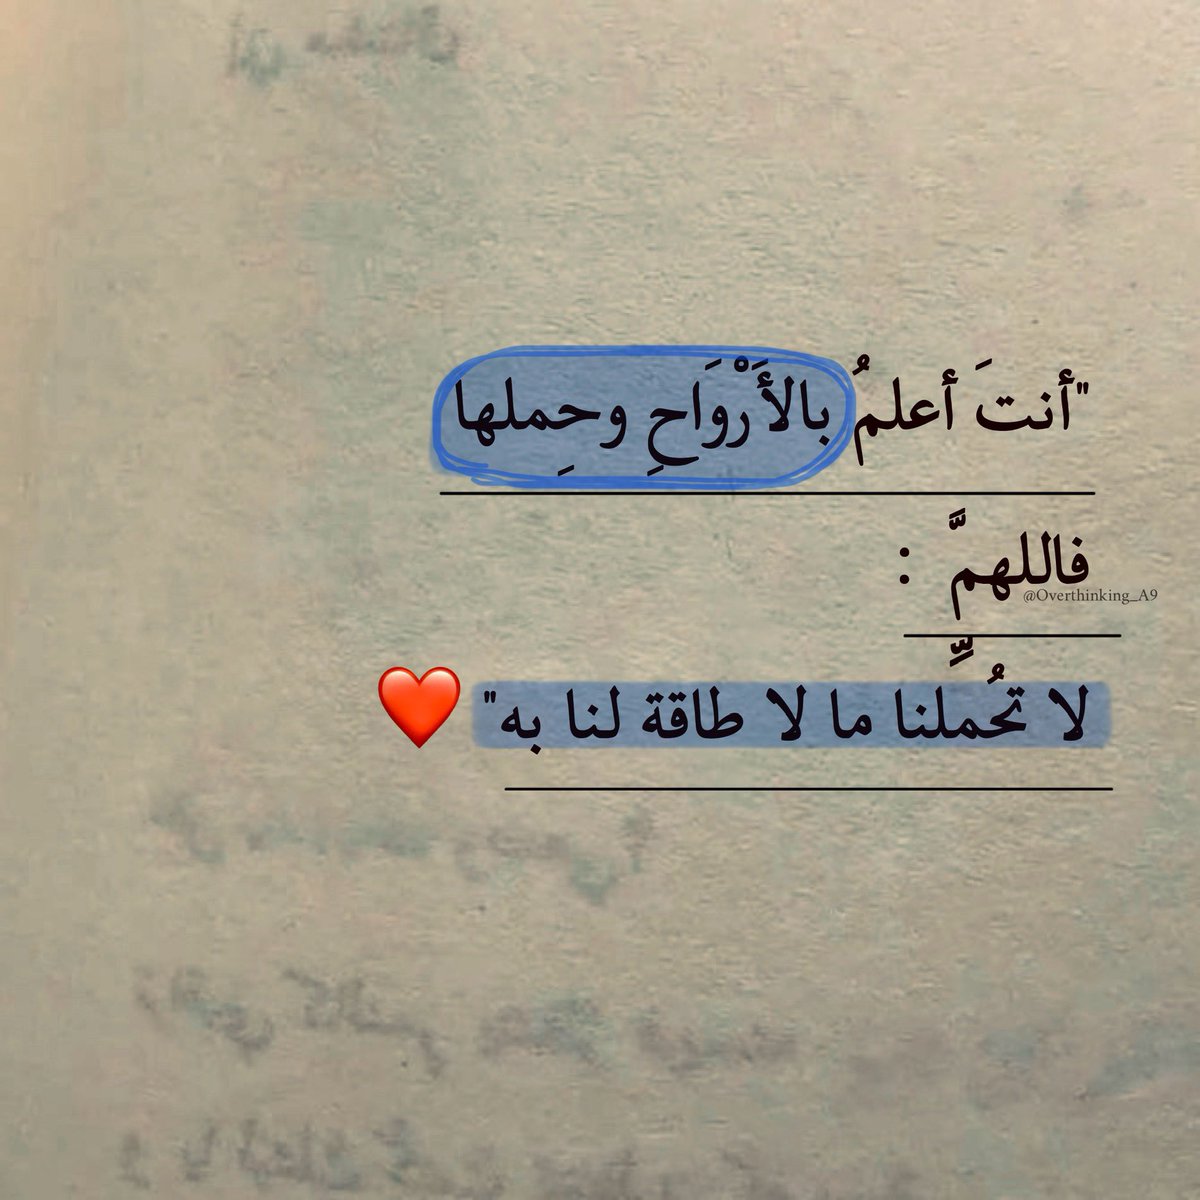 "أنتَ أعلمُ بالأَرْوَاحِ وحِملها
فاللهمَّ :
@Overthinking_A9
لا تحُملِّنا ما لا طاقة لنا به" ❤️